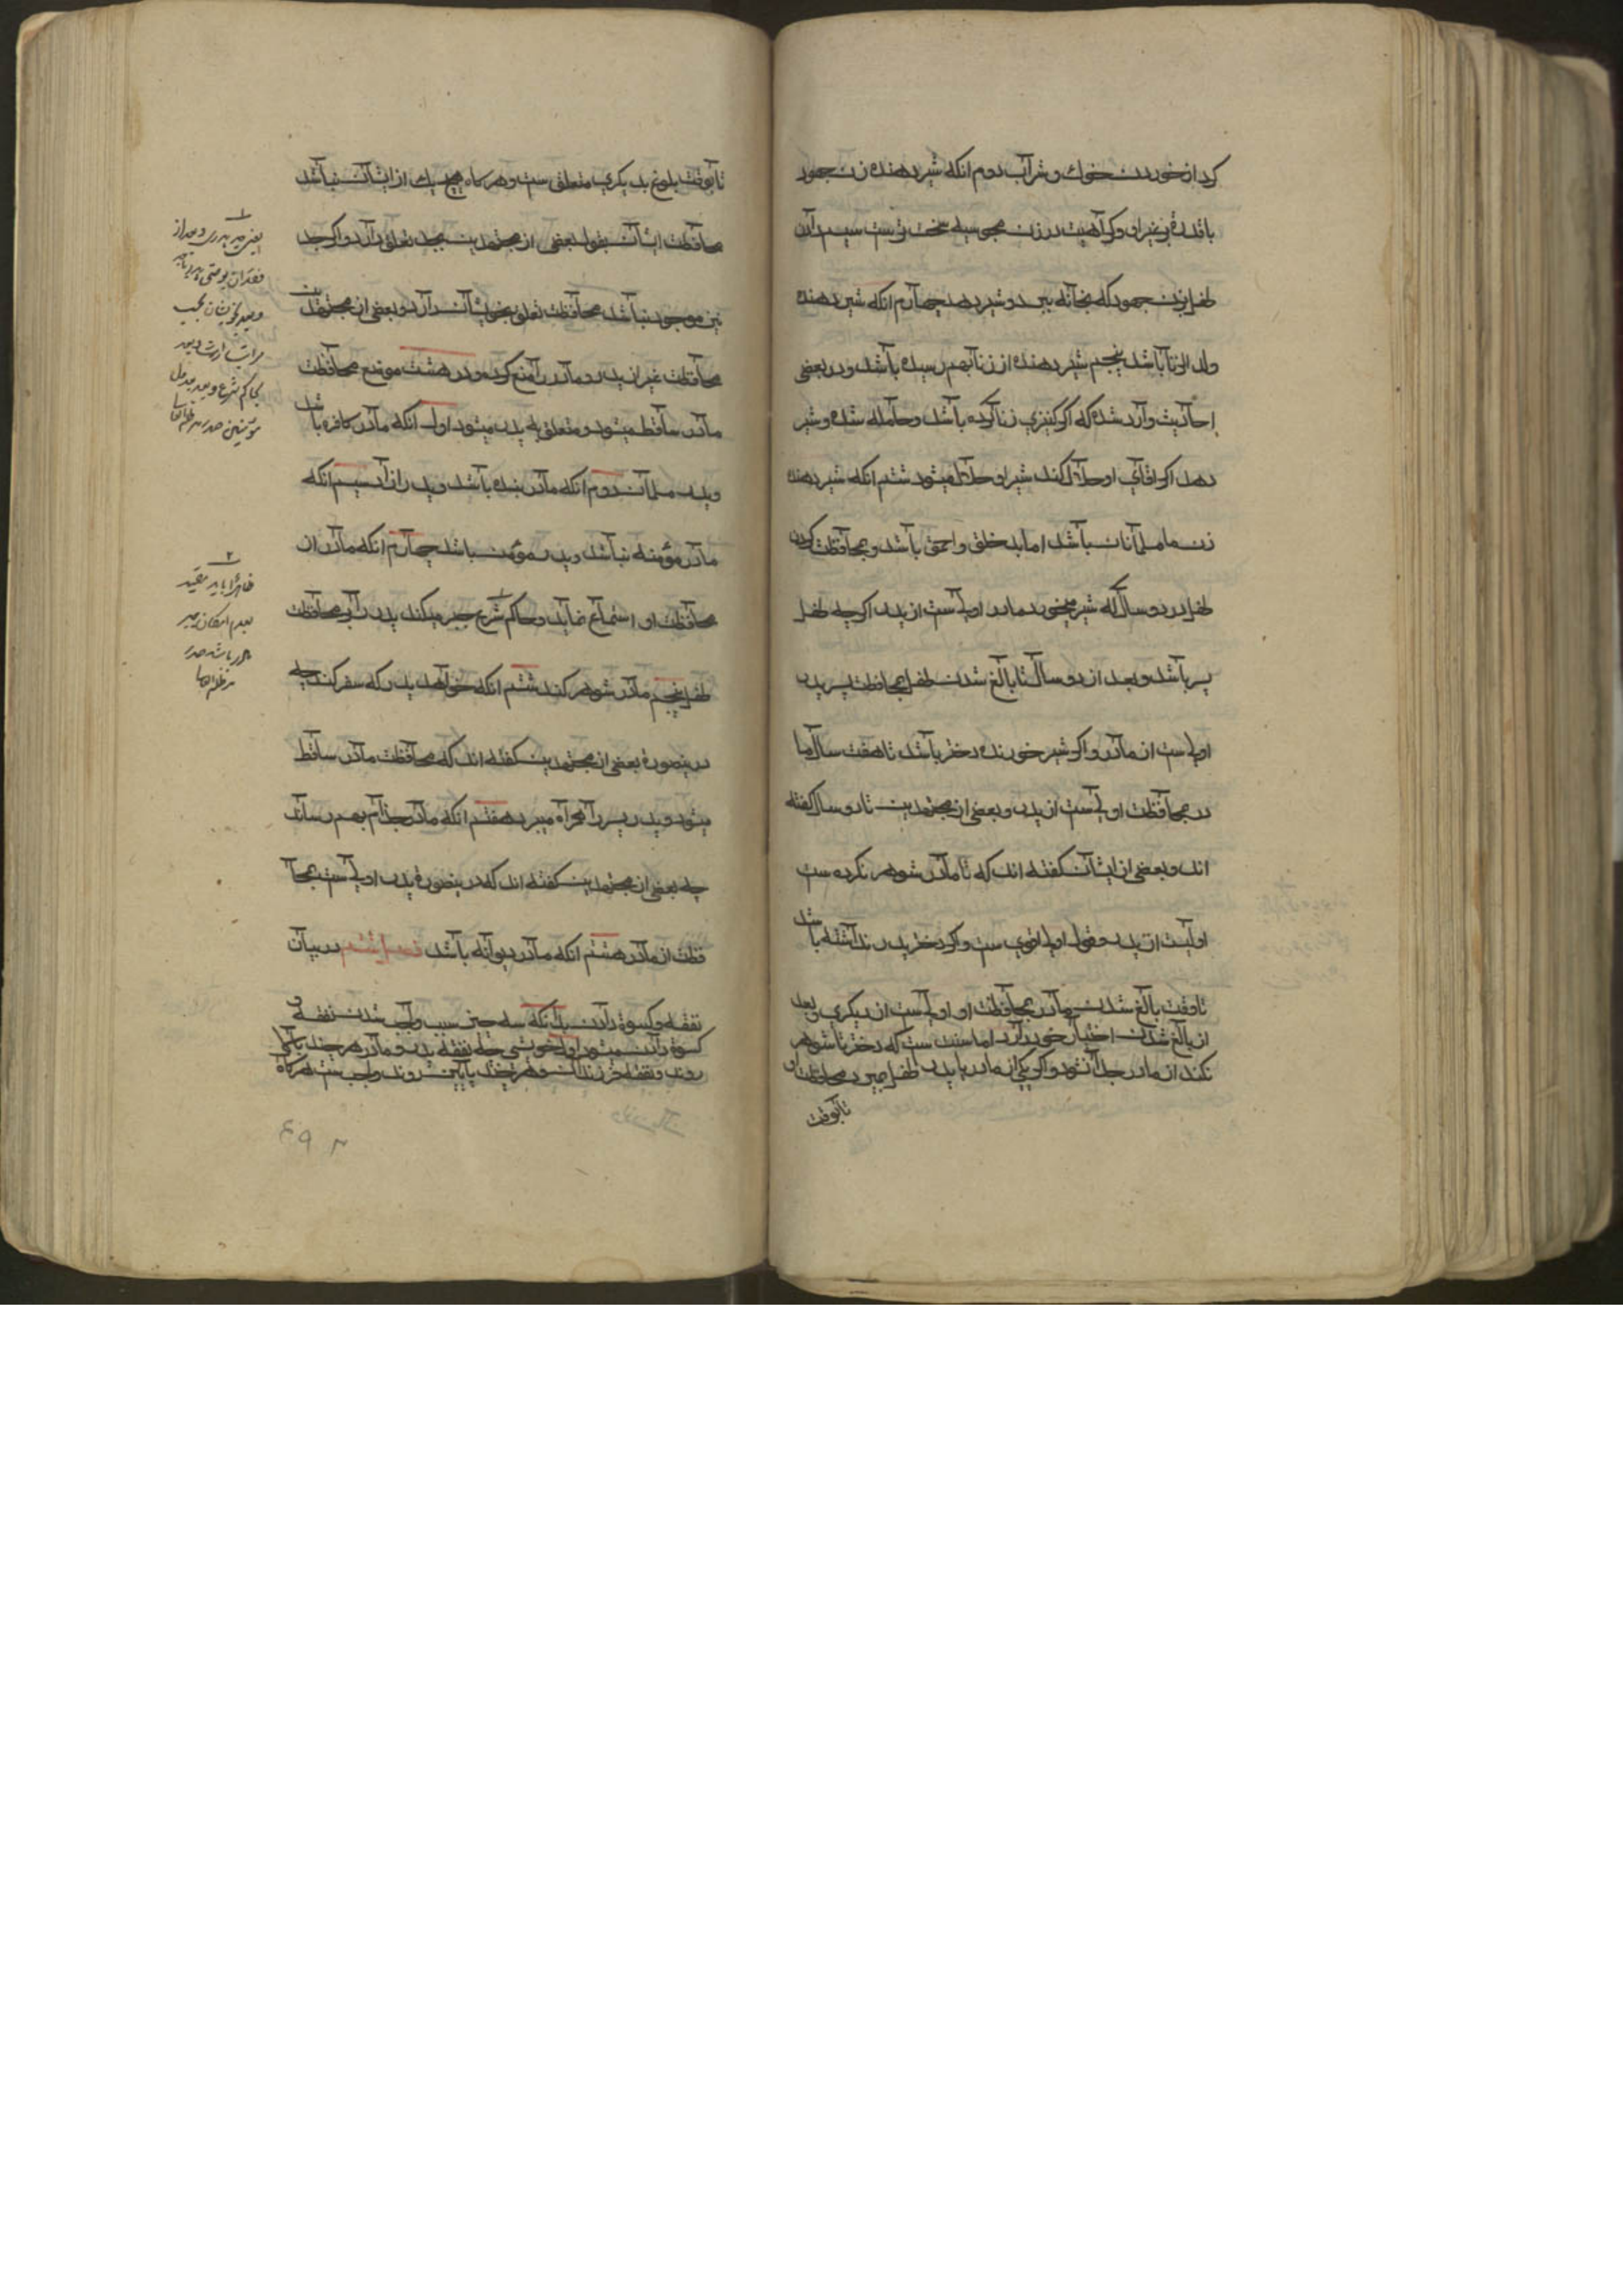 کرد از خوردن خوک و شراب دوم انکه شیر دهنده زن جهود
باشد و غیر او و کراهیت در زن مجوسیه سخت تر ست سیم دادن
طفل بزن جهود که بخانه برد و شیر دهد چهارم انکه شیر دهنده
ولد الزنا باشد پنجم شیر دهنده از زنا بهم رسیده باشد و در بعضی
احادیث وارد شده که اگر کنیزی زنا کرده باشد و حامله شده و شیر
دهد اگر اقای او حلال کند شیر او حلال میشود ششم انکه شیر دهنده
زن مسلمانان باشد اما بد خلق و احمق باشد و بمحافظت کردن
طفل در دو سال که شیر میخورد مادر اولی ست از پدر اگر چه طفل
پسر باشد و بعد از دو سال تا بالغ شدن طفل بمحافظت پسر پدر
اولی ست از مادر و اگر شیر خورنده دختر باشد تا هفت سال ما
در بمحافظت اولی ست از پدر و بعضی از مجتهدین تا دو سال گفته
اند و بعضی از ایشان گفته اند که تا مادر شوهر نکرده ست
اولیست از پدر و قول اول اقوی ست و اگر دختر پدر نداشته باشد
تا وقت بالغ شدن مادر بمحافظت او اولی ست از دیگری و بعد
از بالغ شدن اختیار خود دارد اما سنت ست که دختر تا شوهر
نکند از مادر جدا نشود و اگر یکی از مادر یا پدر طفل بمیرد محافظت او
تا بوقت
تا بوقت بلوغ بدیگری متعلق ست و هر گاه هیچ یک از ایشان نباشد
محافظت ایشان بقول بعضی از مجتهدین بجد تعلق دارد و اگر جد
نیز موجود نباشد محافظت تعلق بخویشان دارد و بعضی از مجتهدین
محافظت غیر از پدر و مادر را منع کرده و در هشت موضع محافظت
مادر ساقط میشود و متعلق به پدر میشود اول انکه مادر کافره باشد
و پدر مسلمان دوم انکه مادر بنده باشد و پدر ازاد سیم انکه
مادر مؤمنه نباشد و پدر مؤمن باشد چهارم انکه مادر از
محافظت او امتناع نماید و حاکم شرع جبر میکند پدر را بر محافظت
طفل پنجم مادر شوهر کند ششم انکه خواهد پدر که سفر کند چه
درینصورة بعضی از مجتهدین گفته اند که محافظت مادر ساقط
میشود و پدر پسر را همراه میبرد هفتم انکه مادر جذام بهم رساند
چه بعضی از مجتهدین گفته اند که درینصورة پدر اولی ست بمحا
فظت از مادر هشتم انکه مادر دیوانه باشد فصل ششم در بیان
نفقه و کسوة دادن بدانکه سه چیز سبب واجب شدن نفقه و
کسوة دادن میشود اول خویشی چه نفقه پدر و مادر هر چند بالا
روند و نفقه فرزندان هر چند پایین روند واجب ست هر گاه
۱
یعنی جد پدری و بعد از
۲
ظاهرا باید مقید
بعدم امکان جبر
مادر باشد صدر
مد ظله العالی